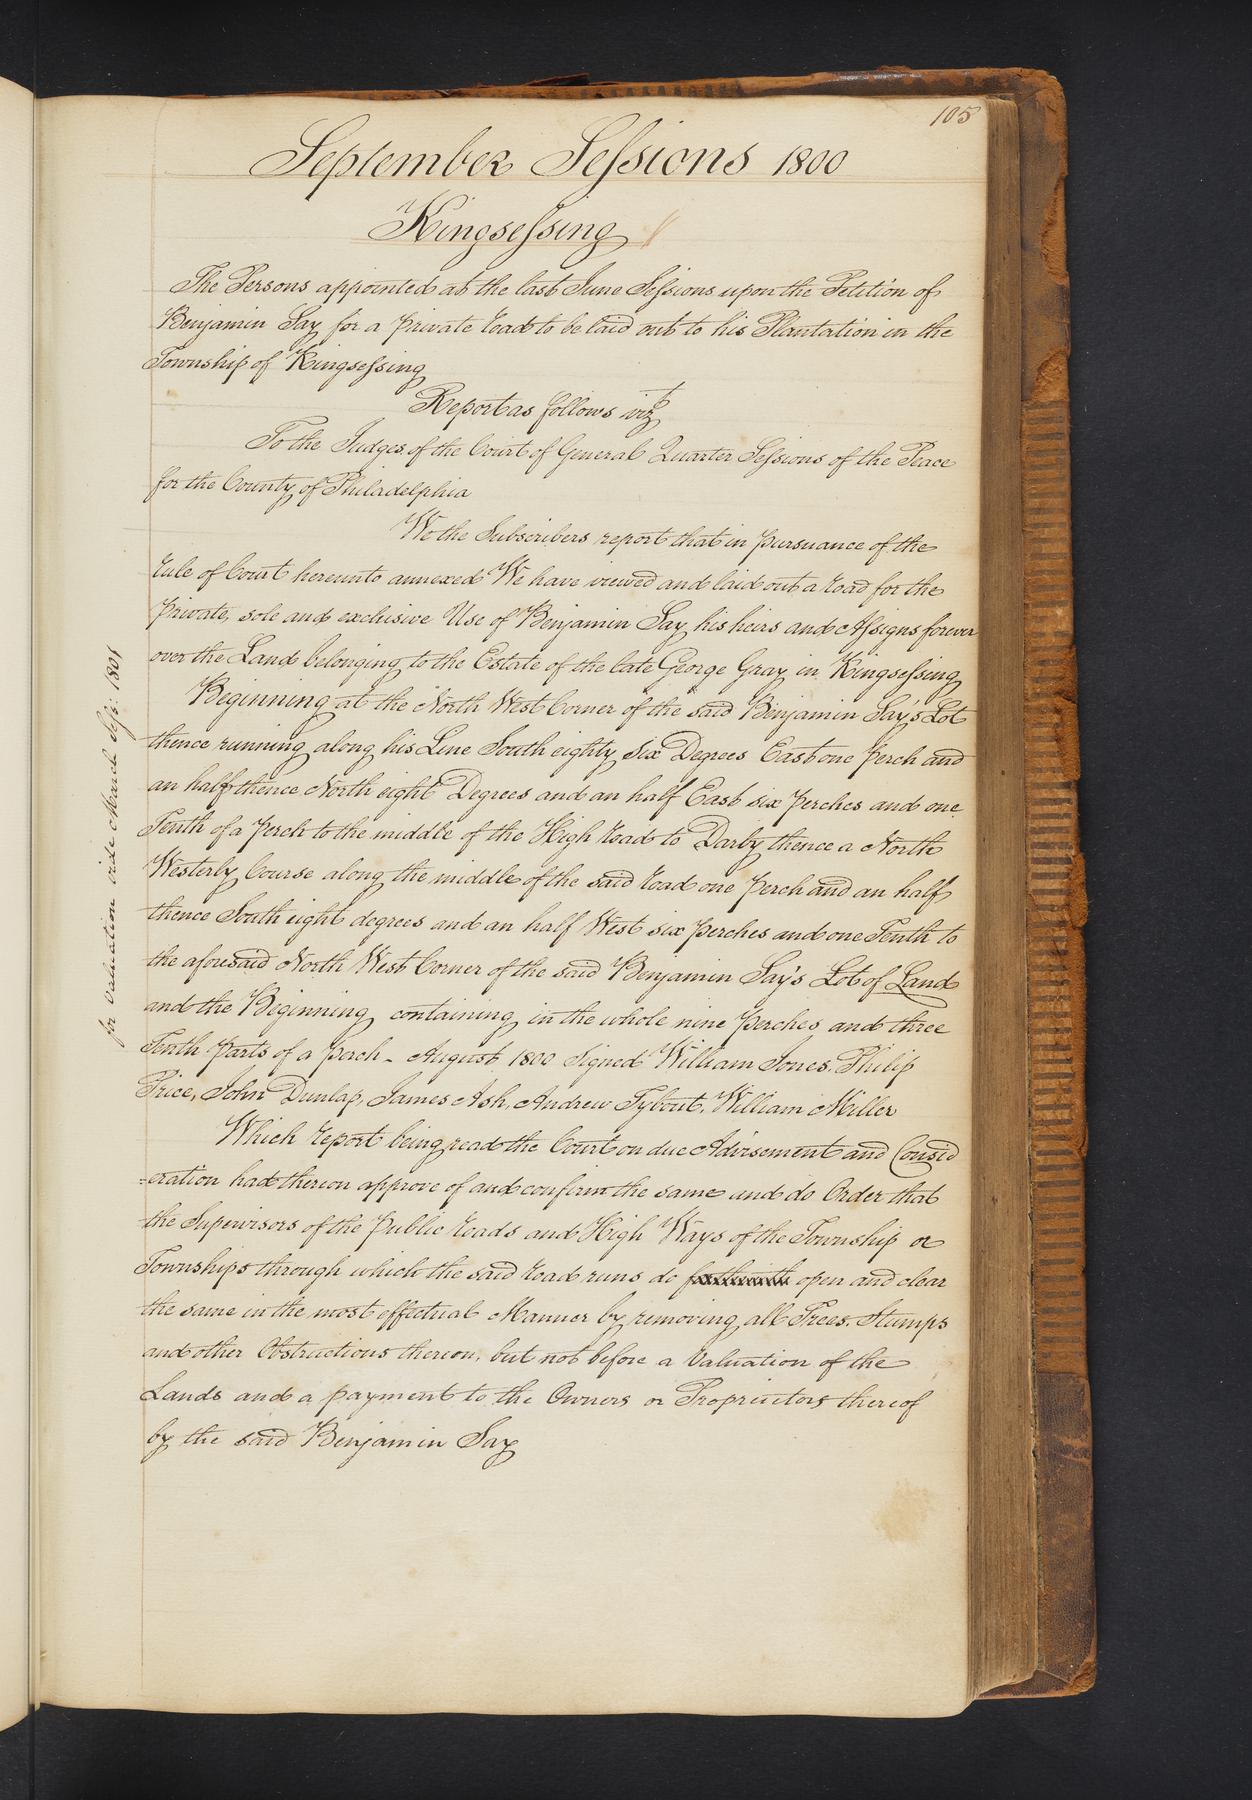 105
September Seſsions 1800
Kingseſsing
The Persons appointed at the last June Seſsions upon the Petition of
Benjamin Say for a private Road to be laid out to his Plantation in the
Township of Kingseſsing
Report as follows vizt
To the Judges of the Court of General Quarter Seſsions of the Peace
for the County of Philadelphia
We the Subscribers report that in pursuance of the
Rule of Court hereunto annexed We have viewed and laid out a Road for the
private, sole and exclusive Use of Benjamin Say his heirs and Aſsigns forever
over the Land belonging to the Estate of the late George Gray in Kingseſsing
Beginning at the North West Corner of the said Benjamin Say's Lot
thence running along his Line South eighty six Degrees East one perch and
an half thence North eight Degrees and an half East six perches and one
Tenth of a perch to the middle of the High Road to Darby thence a North
Westerly Course along the middle of the said Road one perch and an half
thence South eight degrees and an half West six perches and one Tenth to
the aforesaid North West Corner of the said Benjamin Say's Lot of Land
and the Beginning containing in the whole nine perches and three
Tenth Parts of a perch - August 1800 Signed William Jones. Philip
Price, John Dunlap, James Ash, Andrew Tybout, William Miller
Which Report being read the Court on due Advisement and Consid
=eration had thereon approve of and confirm the same and do Order that
the Supervisors of the Public Roads and High Ways of the Township or
Townships through which the said Road runs do forthwith open and clear
the same in the most effectual Manner by removing all Trees, Stumps
and other Obstructions thereon, but not before a Valuation of the
Lands and a payment to the Owners or Proprietors thereof
by the said Benjamin Say
for valuation vide March Seſs: 1801